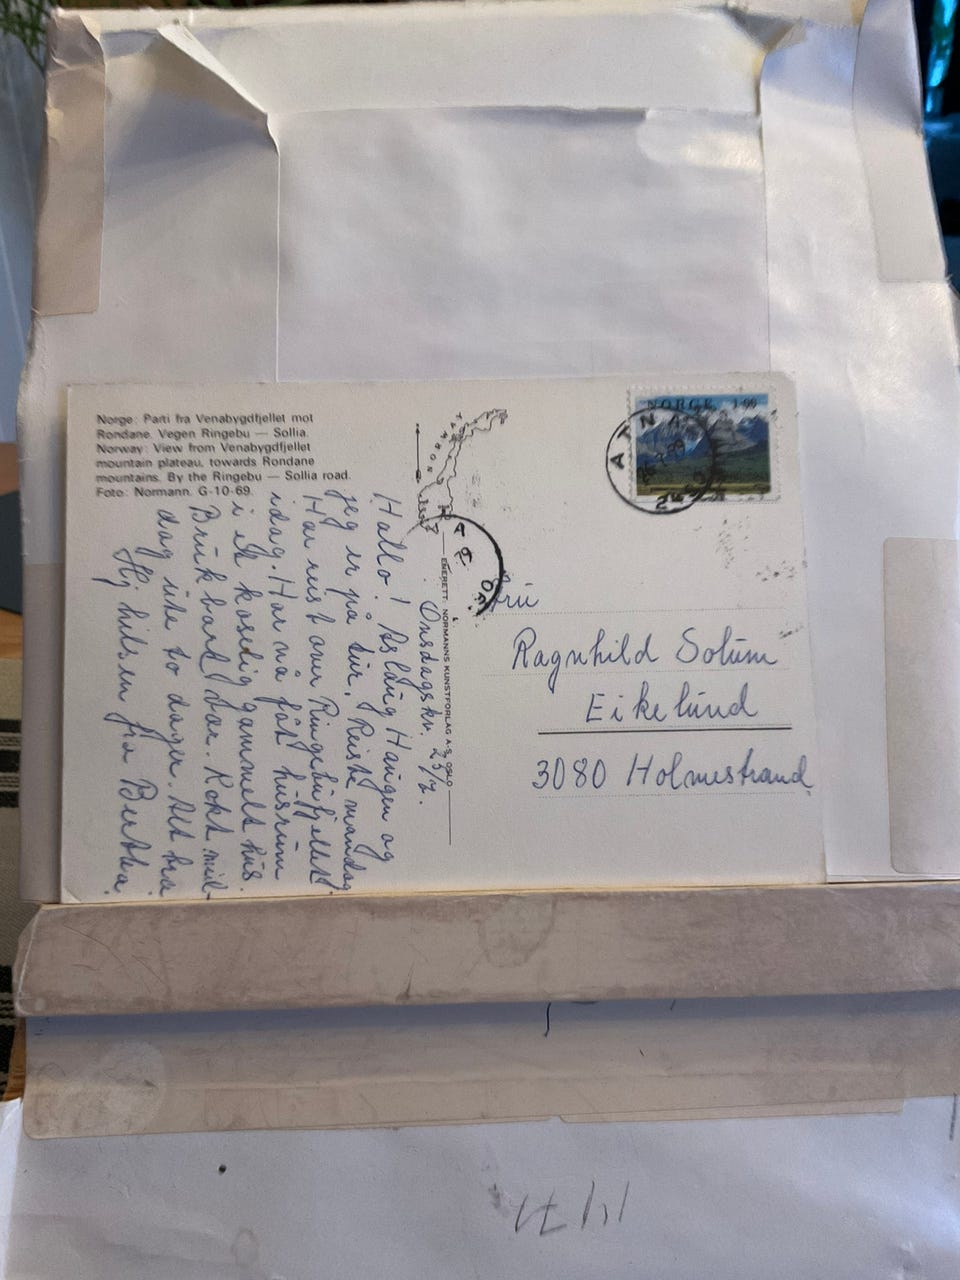 Norge: Parti fra Venabygdfjellet mot
Rondane. Vegen Ringebu — Sollia.
Norway: View from Venabygdfjellet
mountain plateau, towards Rondane
mountains. By the Ringebu — Sollia road.
Foto: Normann. G-10-69.
NORWAY
NORGE 1.90
ATNA
ENERETT: NORMANNS KUNSTFORLAG A/S, OSLO
Onsdagskv. 25/7.
Hallo! Aslaug Haugen og
jeg er på tur. Reiste mandag
Har reist over Ringebufjellet
idag. Har nå fått husrum
i et koselig gammelt hus.
Bruk bare dar. Kokt mid-
dag ute to dager. Alt bra
Hj hilsen fra Bertha.
Fru
Ragnhild Solum
Eikelund
3080 Holmestrand.